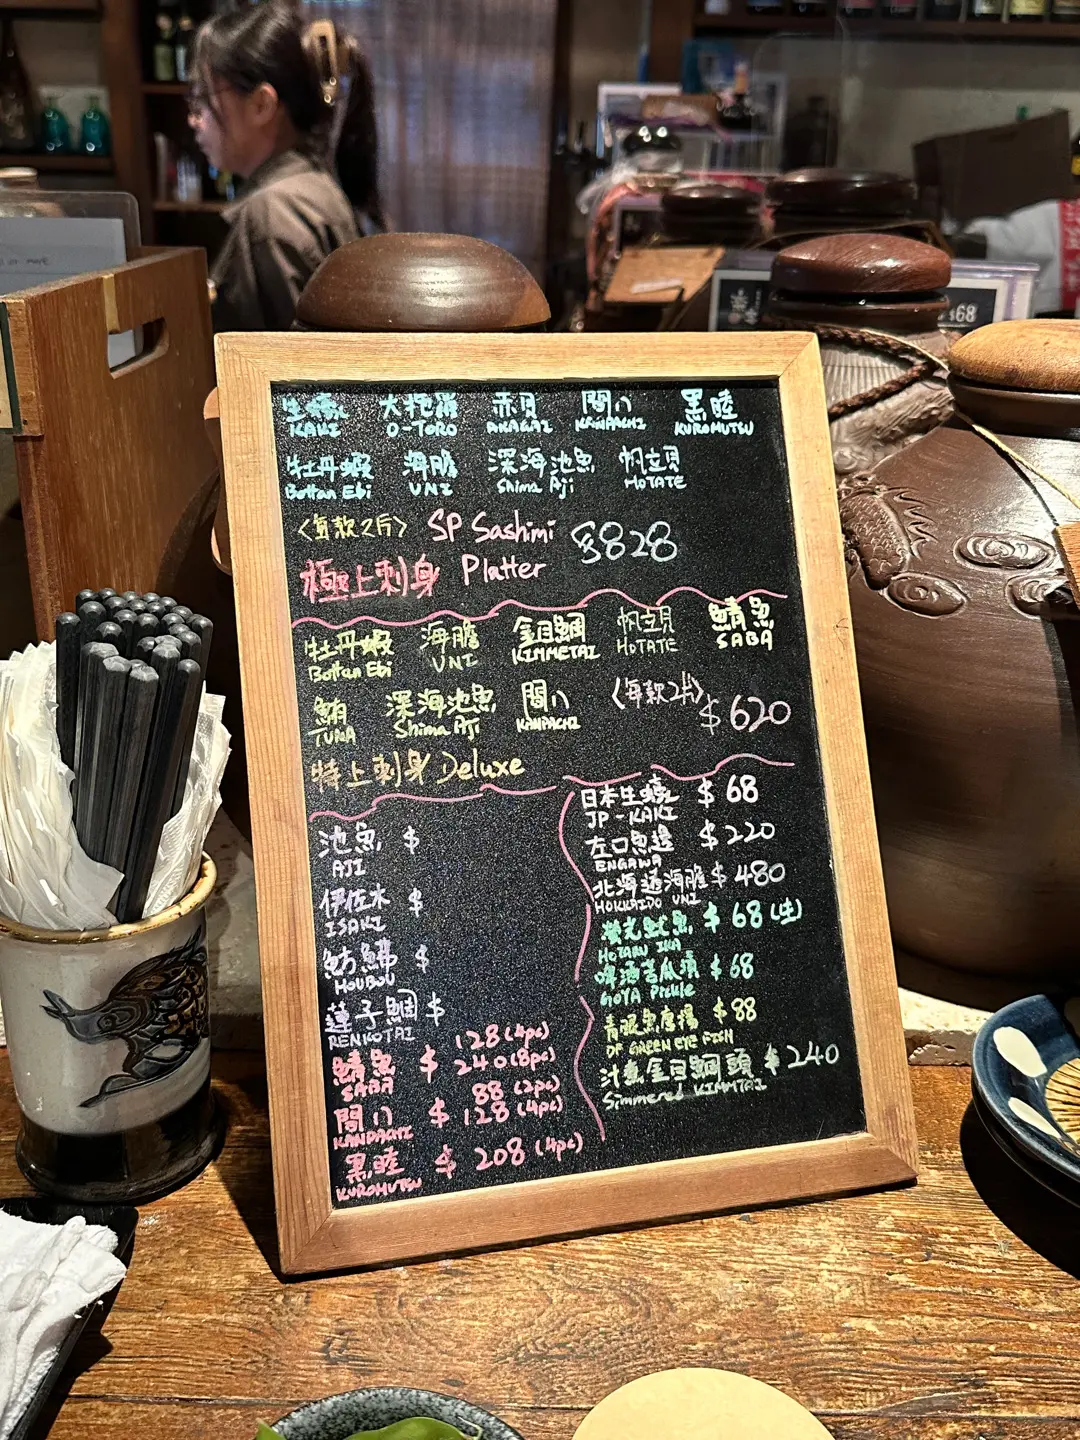 生蠔 大拖羅 赤貝 間八 黑睦
KAKI O-TORO AKAGAI KANPACHI KUROMUTSU
牡丹蝦 海膽 深海池魚 帆立貝
Bottan Ebi UNI Shima Aji HOTATE
〈每款2片〉 SP Sashimi $828
極上刺身 Platter
牡丹蝦 海膽 金目鯛 帆立貝 鯖魚
Bottan Ebi UNI KIMMETAI HOTATE SABA
鮪 深海池魚 間八 〈每款2片〉 $620
TUNA Shima Aji KANPACHI
特上刺身 Deluxe
池魚 $
AJI
伊佐木 $
ISAKI
魴鮄 $
HOUBOU
蓮子鯛 $
RENKOTAI
128(4pc)
鯖魚 $ 240(8pc)
SABA
88(2pc)
間八 $ 128(4pc)
KANPACHI
黑睦 $ 208(4pc)
KUROMUTSU
日本生蠔 $68
JP-KAKI
左口魚邊 $220
ENGAWA
北海道海膽 $480
HOKKAIDO UNI
螢光魷魚 $68(生)
HOTARU IKA
啤酒苦瓜漬 $68
GOYA Pickle
青眼魚唐揚 $88
DF GREEN EYE FISH
汁煮金目鯛頭 $240
Simmered KIMMTAI
68